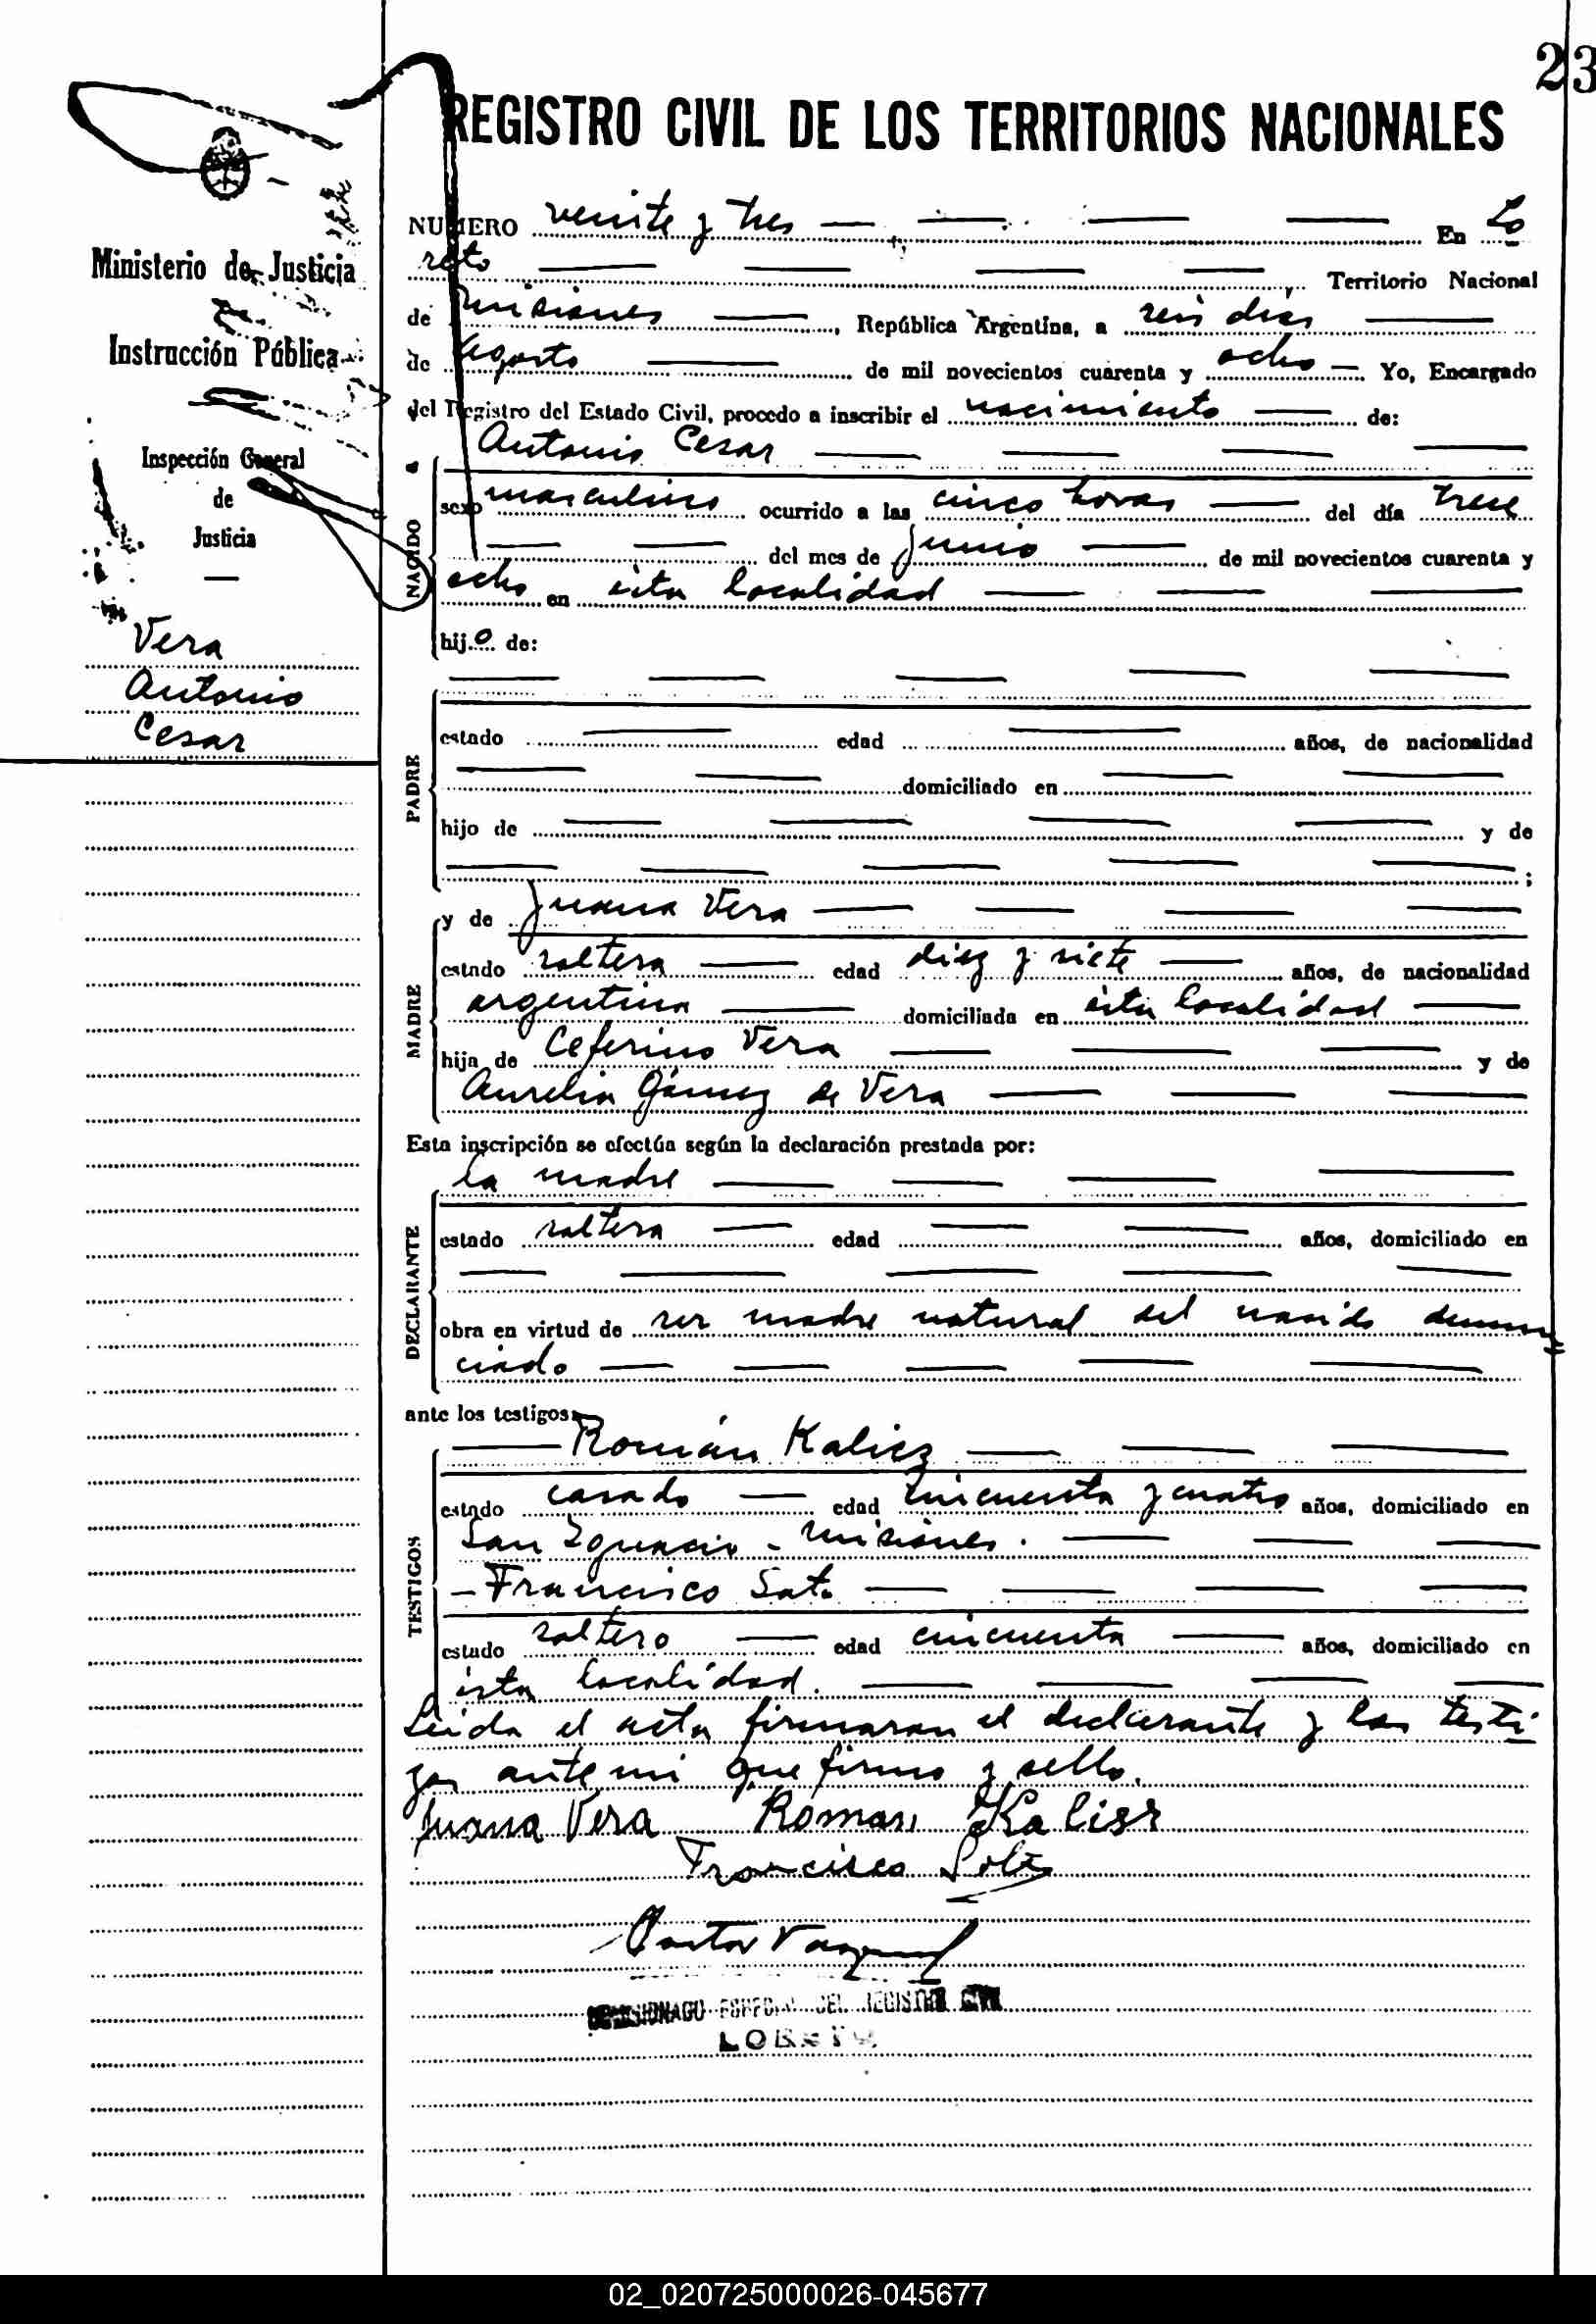 23
REGISTRO CIVIL DE LOS TERRITORIOS NACIONALES
Ministerio de Justicia
Instrucción Pública
Inspección General
de
Justicia
Vera
Antonio
Cesar
NUMERO veinte y tres En Lo
reto Territorio Nacional
de Misiones, República Argentina, a seis días
de Agosto de mil novecientos cuarenta y ocho Yo, Encargado
del Registro del Estado Civil, procedo a inscribir el nacimiento de:
Antonio Cesar
NACIDO
sexo masculino ocurrido a las cinco horas del día trece
del mes de Junio de mil novecientos cuarenta y
ocho en esta localidad
hijo de:
PADRE
estado edad años, de nacionalidad
domiciliado en
hijo de y de
;
MADRE
y de Juana Vera
estado soltera edad diez y siete años, de nacionalidad
argentina domiciliada en esta localidad
hija de Ceferino Vera y de
Aurelia Gómez de Vera
Esta inscripción se efectúa según la declaración prestada por:
la madre
DECLARANTE
estado soltera edad años, domiciliado en
obra en virtud de ser madre natural del nacido denun
ciado
ante los testigos:
TESTIGOS
Román Kalicz
estado casado edad cincuenta y cuatro años, domiciliado en
San Ignacio - Misiones.
Francisco Soto
estado soltero edad cincuenta años, domiciliado en
esta localidad.
Leida el acta firmaran el declarante y los testi
gos ante mi que firmo y sello.
Juana Vera Roman Kalisz
Francisco Soto
COMISIONADO ESPECIAL DEL REGISTRO CIVIL
LORETO
02_020725000026-045677